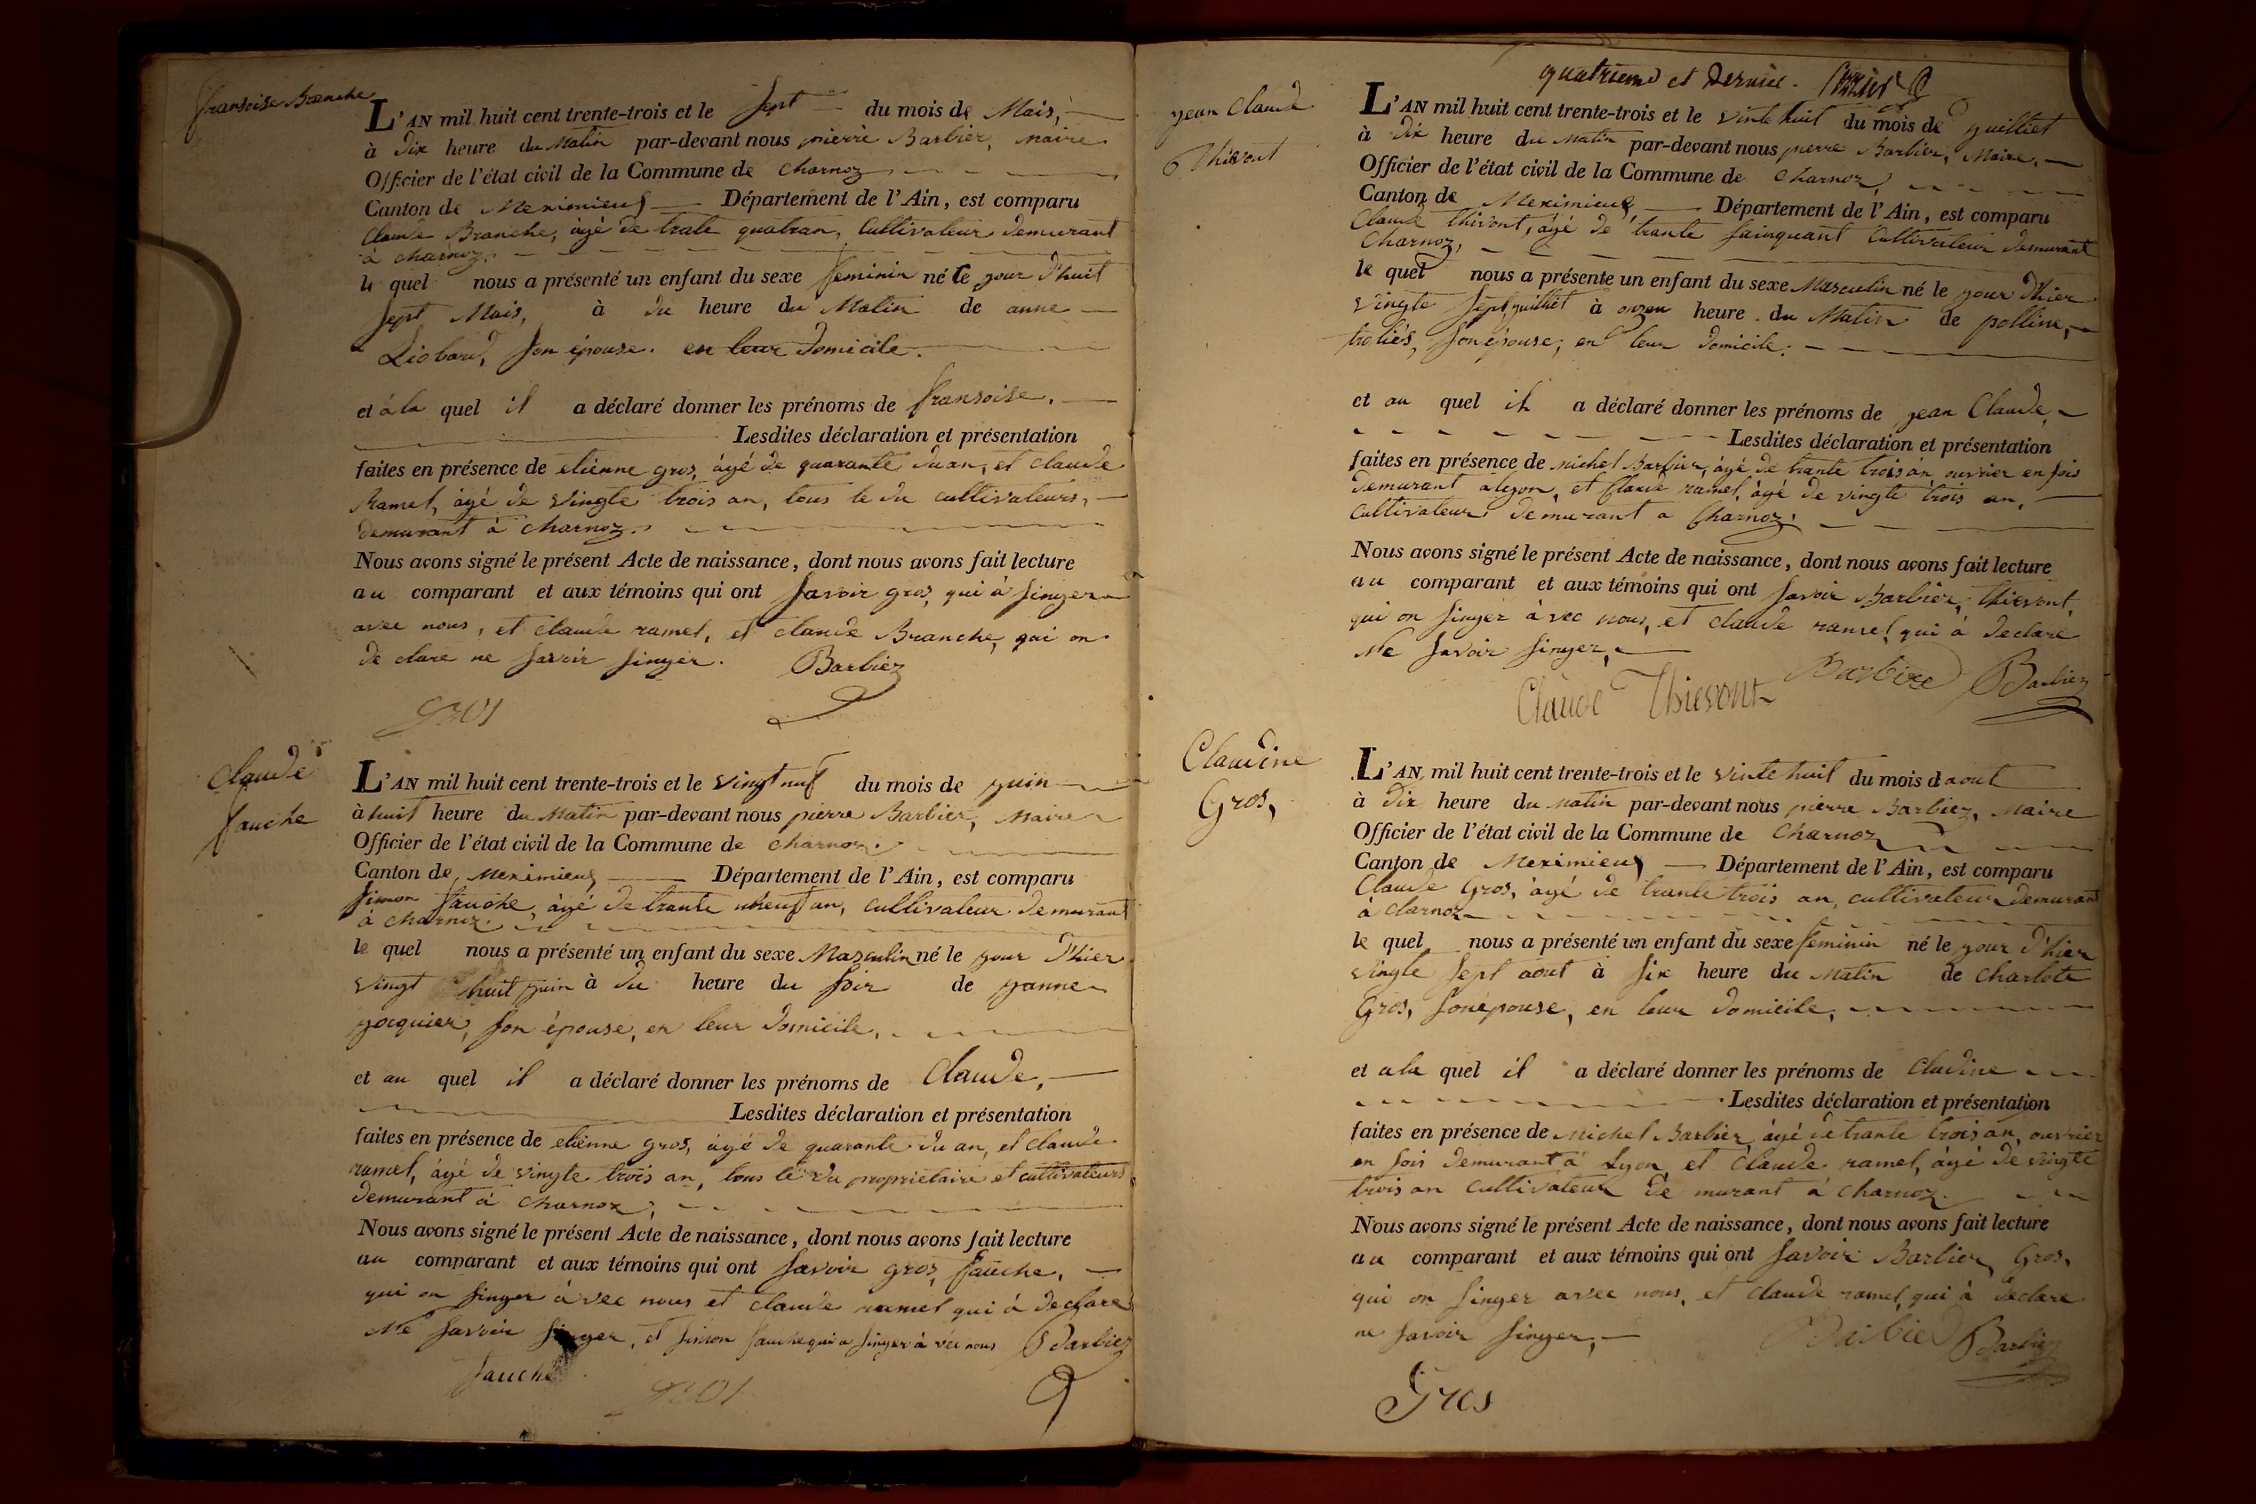 fransoise Branche
L'AN mil huit cent trente-trois et le sept du mois de Mais,
à dix heure du Matin par-devant nous pierre Barbier, maire
Officier de l'état civil de la Commune de Charnoz
Canton de Meximieux Département de l'Ain, est comparu
Claude Branche, âgé de trate quatran, Cultivateur demurant
à charnoz.
le quel nous a présenté un enfant du sexe feminin né le jour d'huit
sept Mais, à du heure du Matin de anne
Liobard, son épouse. en leur domicile.
et à la quel il a déclaré donner les prénoms de fransoise.
Lesdites déclaration et présentation
faites en présence de etienne gros, âgé de quarante du an, et claude
Ramel, âgé de vingte trois an, tous le du cultivateurs,
demurant à charnoz.
Nous avons signé le présent Acte de naissance, dont nous avons fait lecture
au comparant et aux témoins qui ont savoir gros, qui à singer
avec nous, et claude ramel, et claude Branche, qui on
de clare ne savoir singer. Barbiez
gros
Claude
fauche
L'AN mil huit cent trente-trois et le vingt nuf du mois de juin
à huit heure du Matin par-devant nous pierre Barbier, Maire
Officier de l'état civil de la Commune de charnoz.
Canton de Meximieux Département de l'Ain, est comparu
simon fauche, âgé de trante nheuf an, cultivateur demurant
à charnoz.
le quel nous a présenté un enfant du sexe Masculin né le jour d'hier
vingt huit juin à du heure du soir de janne
jocquier, son épouse, en leur domicile.
et au quel il a déclaré donner les prénoms de Claude,
Lesdites déclaration et présentation
faites en présence de etienne gros, âgé de quarante du an, et claude
ramel, âgé de vingte trois an, tous le du proprietaire et cultivateurs
demurant à charnoz,
Nous avons signé le présent Acte de naissance, dont nous avons fait lecture
au comparant et aux témoins qui ont savoir gros, fauche,
qui on singer à vec nous et claude ramel qui à declare
Ne savoir singer, et simon fauche qui a singer à vec nous Barbiez
fauche
gros
quatrieme et Dernier.
jean Claude
Thivont
L'AN mil huit cent trente-trois et le vinte huit du mois de juilliet
à dix heure du matin par-devant nous pierre Barbier, Maire,
Officier de l'état civil de la Commune de Charnoz,
Canton de Meximieux Département de l'Ain, est comparu
Claude thivont, âgé de trante sainquant Cultivateur demurant
Charnoz,
le quel nous a présenté un enfant du sexe Masculin né le jour d'hier
vingte sept juilliet à onzeu heure du Matin de polline,
troliés, son épouse, en leur domicile.
et au quel il a déclaré donner les prénoms de jean Claude,
Lesdites déclaration et présentation
faites en présence de michel Barbier, âgé de trante trois an ouvrier en sois
demurant aleyon, et Claude ramel, âgé de vingte trois an,
Cultivateur demurant a Charnoz.
Nous avons signé le présent Acte de naissance, dont nous avons fait lecture
au comparant et aux témoins qui ont savoir Barbier, thievont,
qui on singer à vec nous, et claude ramel, qui à declare
Ne savoir singer,
Barbier Barbiez
Claude Thievont
Claudine
Gros,
L'AN mil huit cent trente-trois et le vinte huit du mois d aout
à dix heure du matin par-devant nous pierre Barbiez, Maire
Officier de l'état civil de la Commune de Charnoz
Canton de Meximieux Département de l'Ain, est comparu
Claude Gros, âgé de trante trois an, cultivateur demurant
à clarnoz
le quel nous a présenté un enfant du sexe feminin né le jour d'hier
vingte sept aout à six heure du Matin de charlote
Gros, son épouse, en leur domicile,
et a la quel il a déclaré donner les prénoms de Cladine
Lesdites déclaration et présentation
faites en présence de Michel Barbier, âgé de trante trois an, ouvrier
en sois demurant a Lyon, et Claude ramel, âgé de vingte
trois an cultivateur de murant à charnoz.
Nous avons signé le présent Acte de naissance, dont nous avons fait lecture
au comparant et aux témoins qui ont savoir Barbier, Gros,
qui on singer avec nous, et claude ramel, qui à declare
ne savoir singer,
Barbier Barbiez
Gros